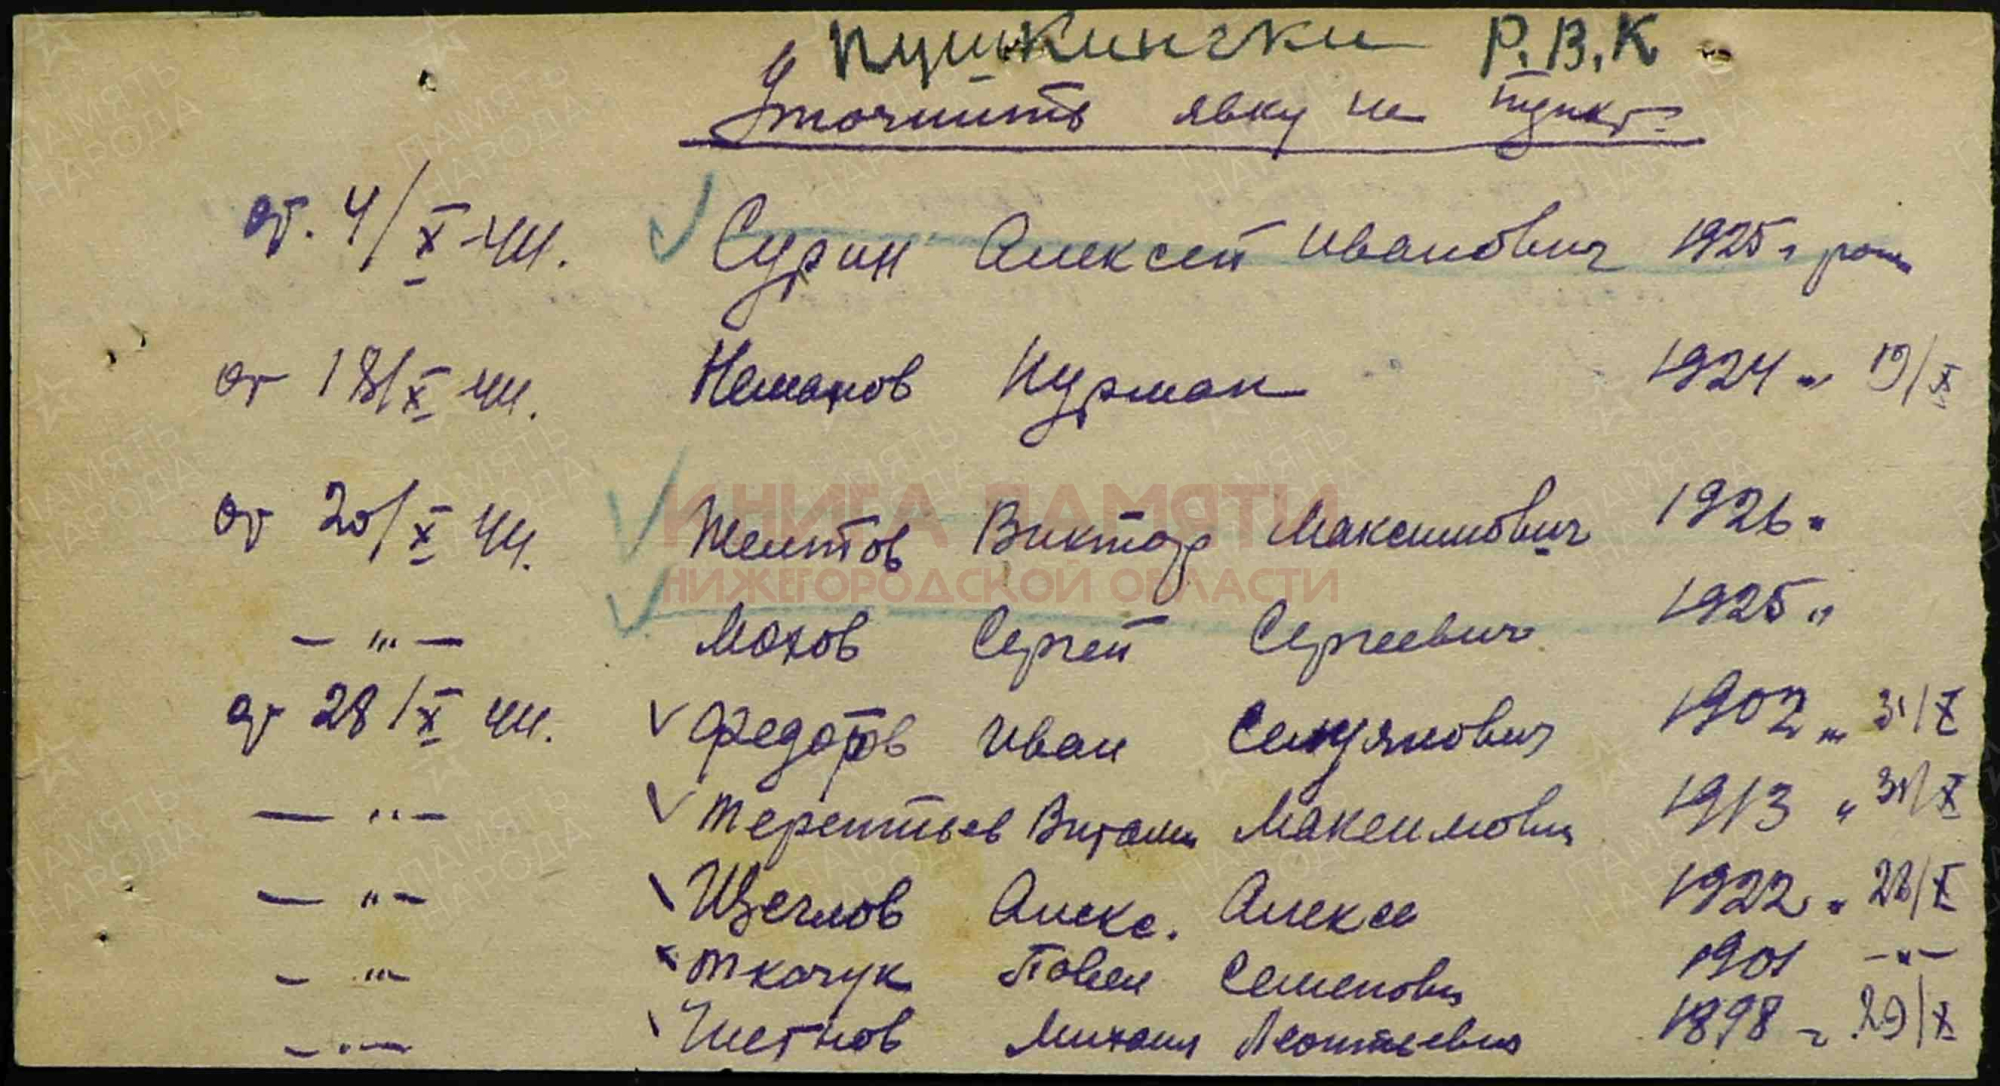 Пушкински Р.В.К
Уточнить явку на пункт.
от. 4/X-44. Сурин Алексей Иванович 1925 г рож
от 18/X 44. Неманов Нурман 1924 " 19/X
от 20/X 44. Желтов Виктор Максимович 1926 "
КНИГА ПАМЯТИ
НИЖЕГОРОДСКОЙ ОБЛАСТИ
— " — Мохов Сергей Сергеевич 1925 "
от 28/X 44. Федотов Иван 1902 " 31/X
— " — Терентьев Витали Максимович 1913 " 31/X
— " — Щеглов Алекс. Алексе 1922 " 28/X
— " — Ткачук Павел Семенович 1901 — " —
— " — Михаил Леонтьевич 1898 " 29/X
ПАМЯТЬ НАРОДА